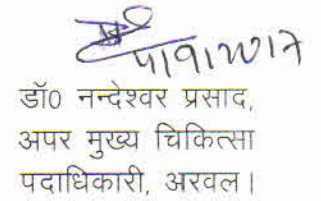 4/9/2017
डॉ0 नन्देश्वर प्रसाद,
अपर मुख्य चिकित्सा
पदाधिकारी, अरवल।